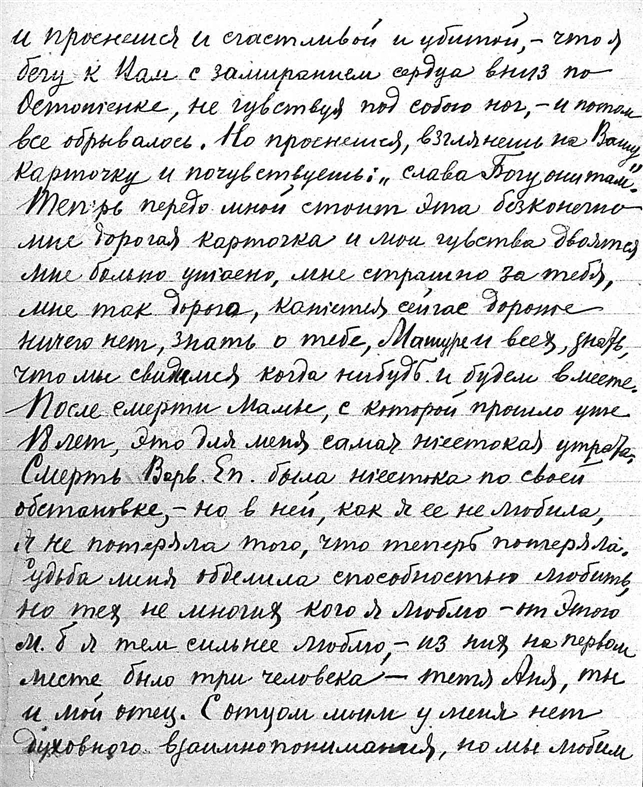 и проснешся и счастливой и убитой, – что я
бегу к Вам с замиранием сердца вниз по
Остоженке, не чувствуя под собою ног, – и потом
все обрывалось. Но проснешся, взглянешь на Вашу
карточку и почувствуешь: „слава Богу они там".
Теперь передо мной стоит эта безконечно
мне дорогая карточка и мои чувства двоятся
мне больно ужасно, мне страшно за тебя,
мне так дорого, кажется сейчас дороже
ничего нет, знать о тебе, Машуре и всех, знать,
что мы свидимся когда нибудь и будем вместе.
После смерти Мамы, с которой прошло уже
лет, это для меня самая жестокая утрата.
Смерть Варв. Еп. была жестока по своей
обстановке, – но в ней, как я ее не любила,
я не потеряла того, что теперь потеряла.
Судьба меня обделила способностью любить,
но тех не многих кого я люблю – от этого
м. б я тем сильнее люблю, – из них на первом
месте было три человека – тетя Аня, ты
и мой отец. С отцом моим у меня нет
духовного взаимнопонимания, но мы любим